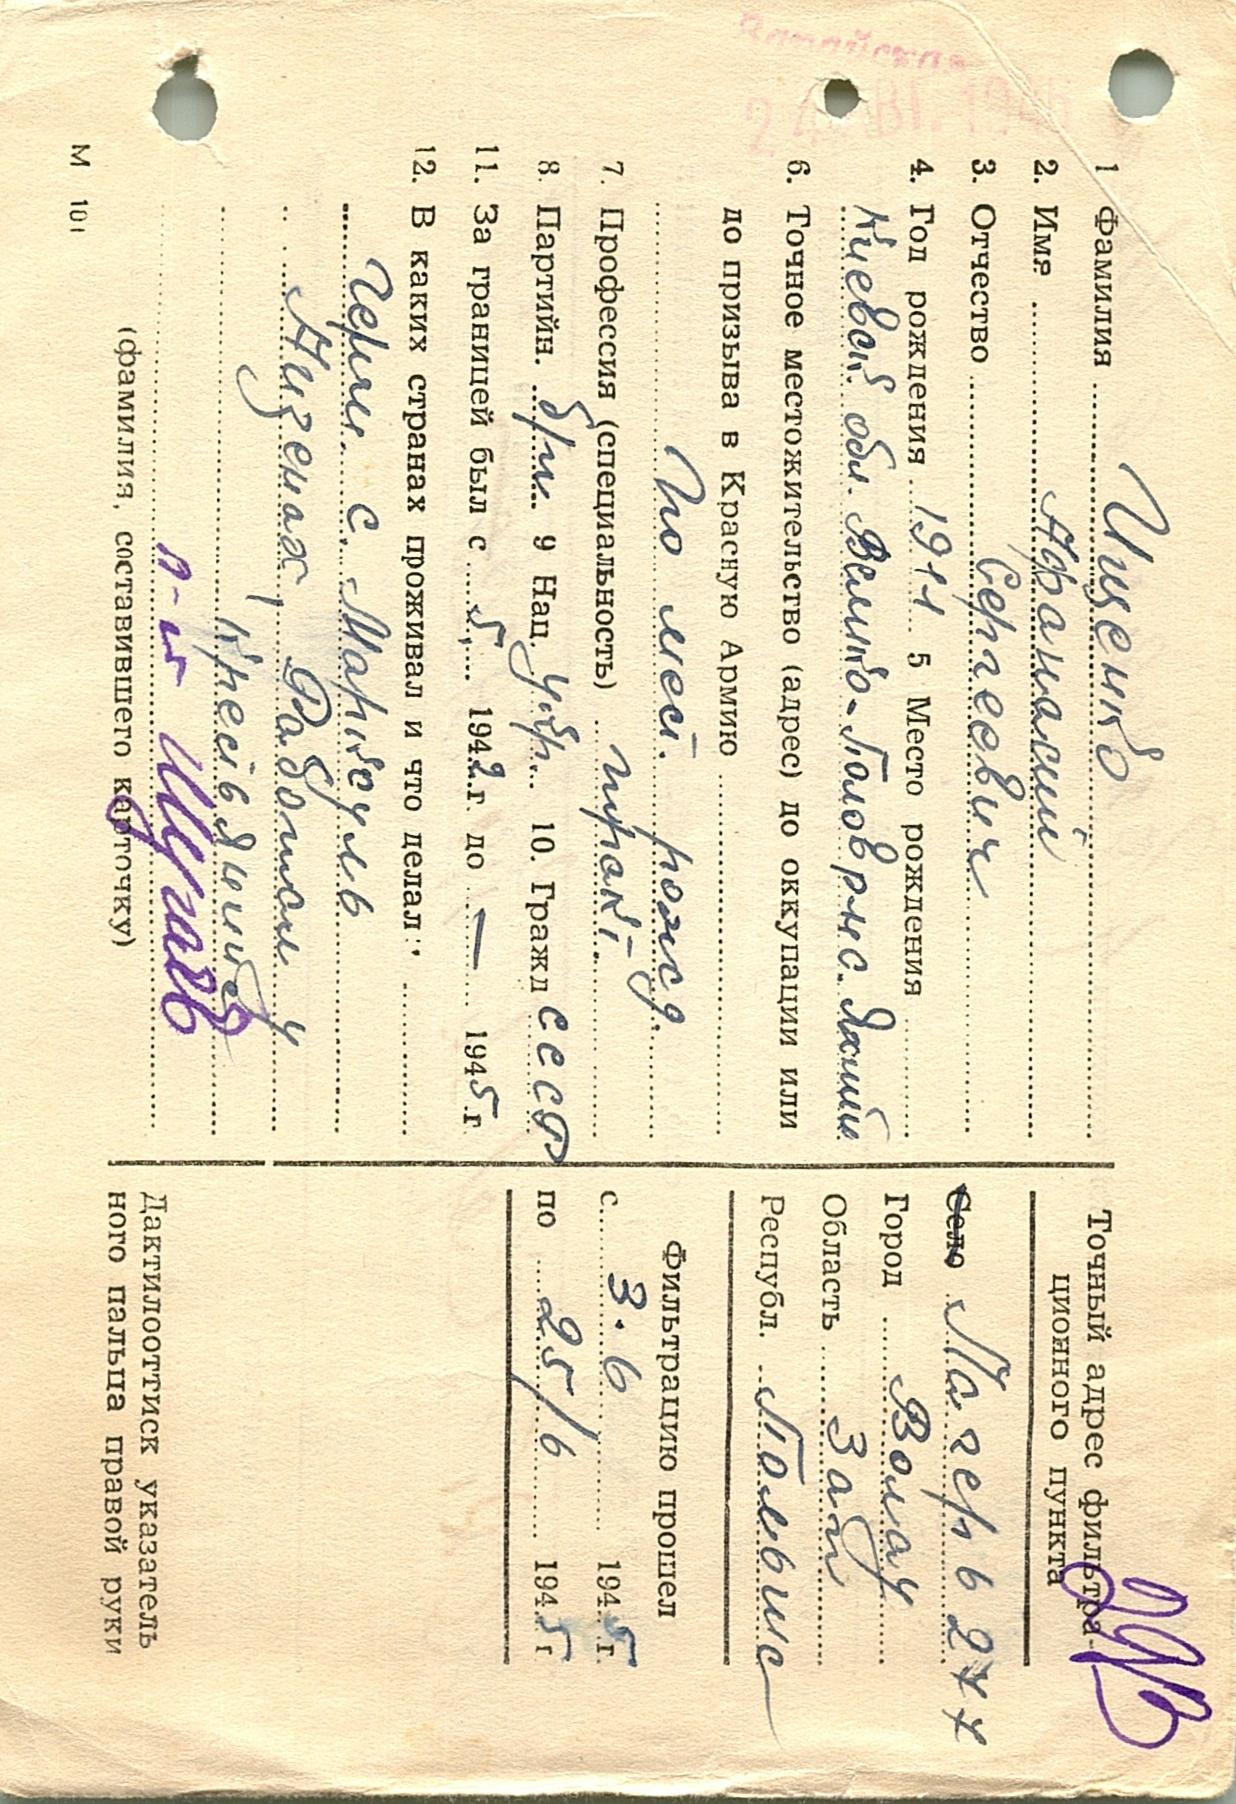 1 Фамилия Ищенко
2. Имя Афанасий
3. Отчество Сергеевич
4. Год рождения 1911 5 Место рождения
Киевск. обл.
6. Точное местожительство (адрес) до оккупации или
до призыва в Красную Армию
По мест. рожд.
7. Профессия (специальность) тракт.
8. Партийн. б/п. 9 Нац. укр. 10. Гражд СССР
11. За границей был с 5. 1942 г. до — 1945 г
12. В каких странах проживал и что делал:
Герм. с.
Работал у
крестьянина
л-т
(фамилия, составившего карточку)
М 10
Точный адрес фильтра-
ционного пункта
Село Лагерь 277
Город
Область Зап
Республ. Польша
Фильтрацию прошел
с 3.6 1945 г.
по 25/6 1945 г
Дактилооттиск указатель
ного пальца правой руки